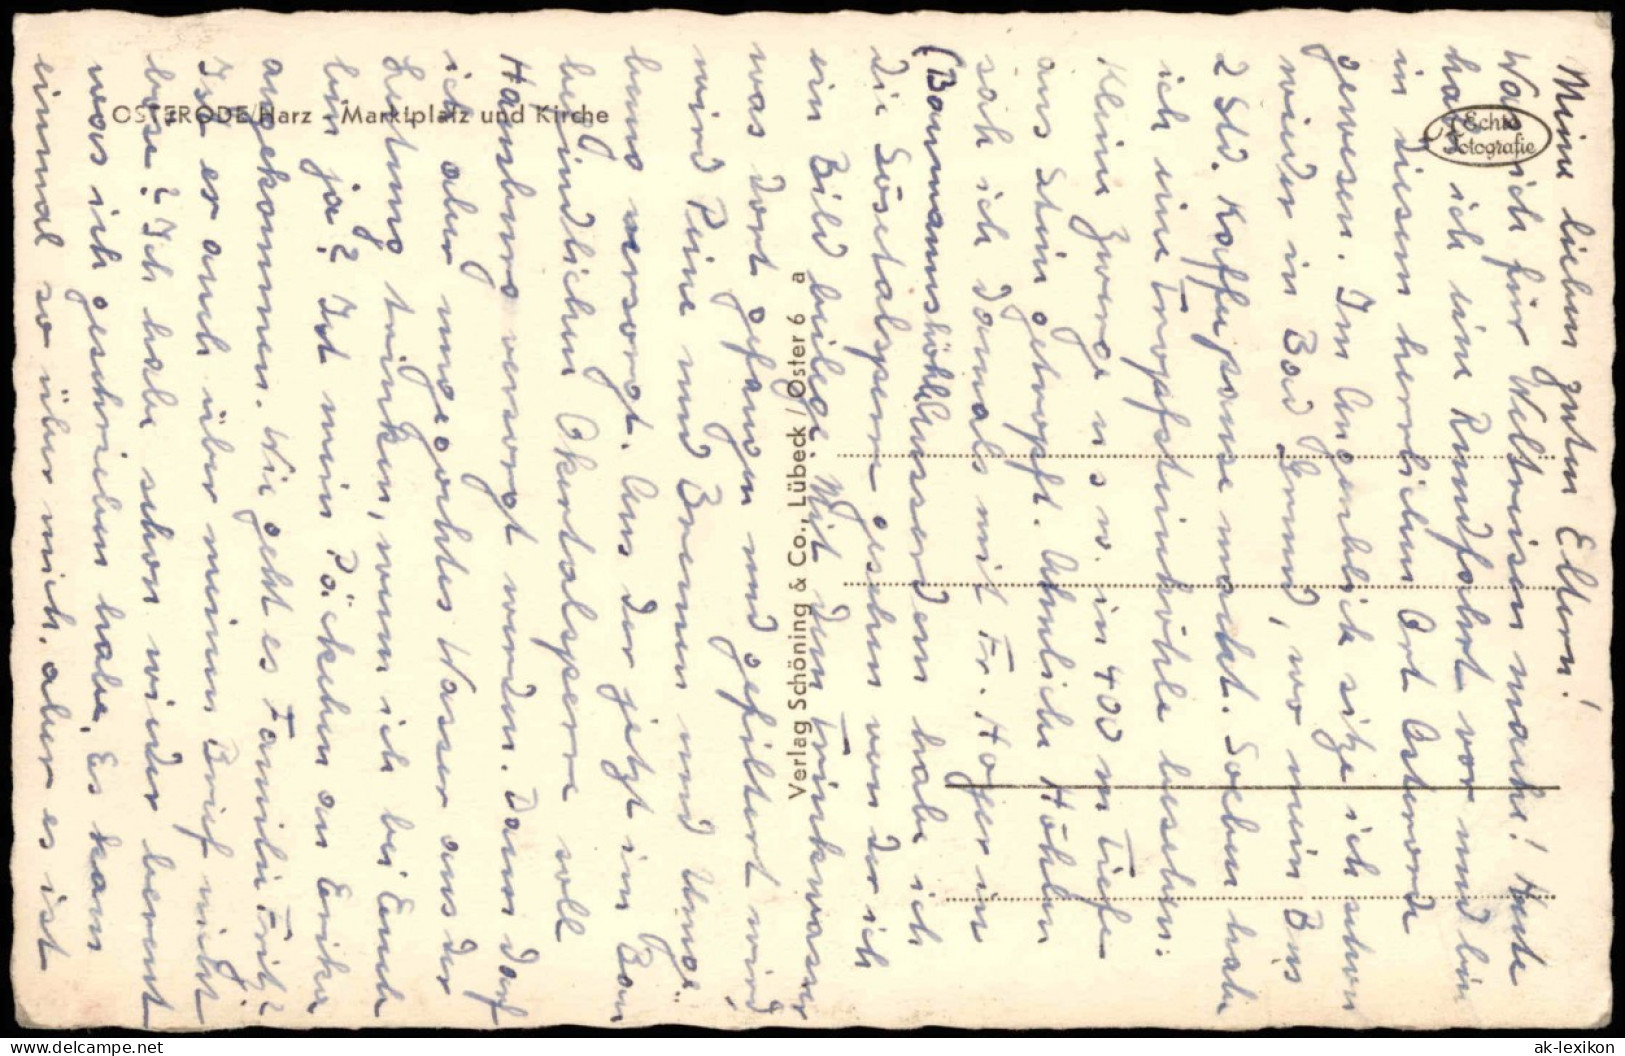 Meine lieben guten Eltern!
Was ich für Weltreisen mache! Heute
habe ich eine Rundfahrt vor und bin
in diesem herrlichen Ort Osterode
gewesen. Im Augenblick sitze ich schon
wieder in Bad Grund, wo mein Bus
2 Std. Kaffeepause macht. Soeben habe
ich eine Tropfsteinhöhle besehen:
Kleine Zwerge u s w. in 400 m Tiefe
aus Stein getropft. Ähnliche Höhlen
sah ich damals mit Fr. Hoyer in
(Baumannshöhle) Ausserdem habe ich
die Sösetalsperre gesehen von der ich
ein Bild beilege. Mit dem Trinkwasser
was dort gefangen und gefiltert wird
wird Peine und Bremen und Umge-
bung versorgt. Aus der jetzt im Bau
befindlichen Okertalsperre soll
Hamburg versorgt werden. Dann darf
ich aber ungekochtes Wasser aus der
Leitung trinken, wenn ich bei Euch
bin ja? Ist mein Päckchen an Erika
angekommen. Wie geht es Familie Fritz?
Ist er auch über meinen Brief nicht
böse? Ich habe schon wieder bereut
was ich geschrieben habe. Es kam
einmal so über mich. aber es ist
OSTERODE/Harz - Marktplatz und Kirche
Echte
Fotografie
Verlag Schöning & Co., Lübeck / Oster 6 a
delcampe.net
ak-lexikon